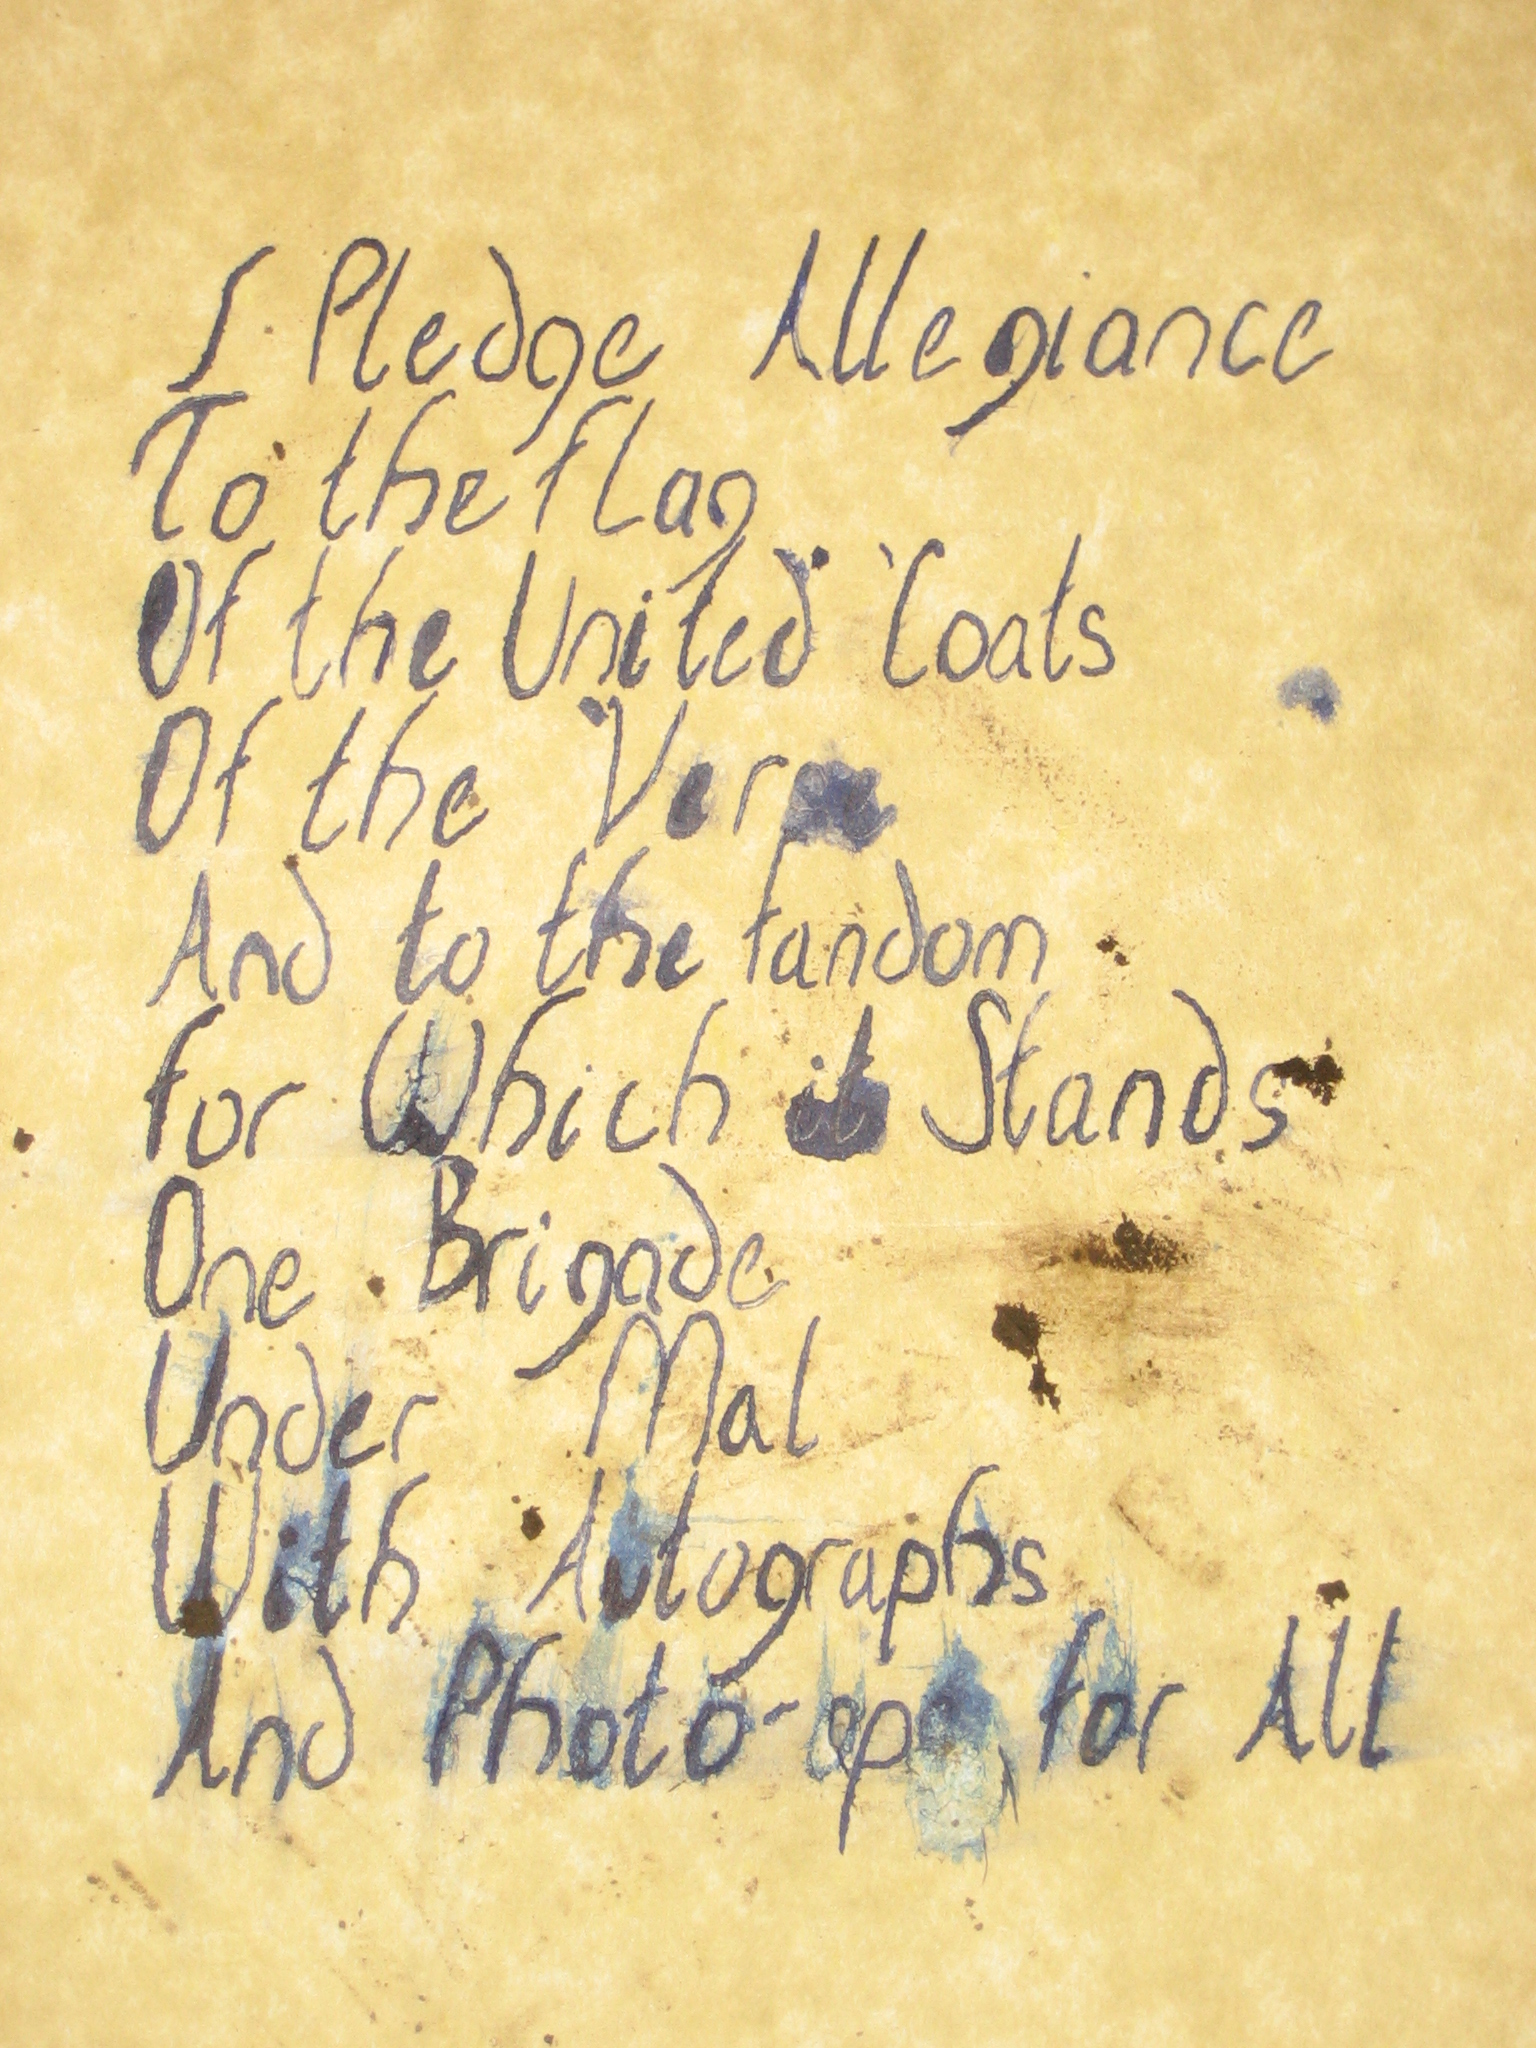 I Pledge Allegiance
To the flag
Of the United Coats
Of the Verse
And to the fandom
for Which it Stands
One Brigade
Under Mal
With Autographs
And Photo-ops for All